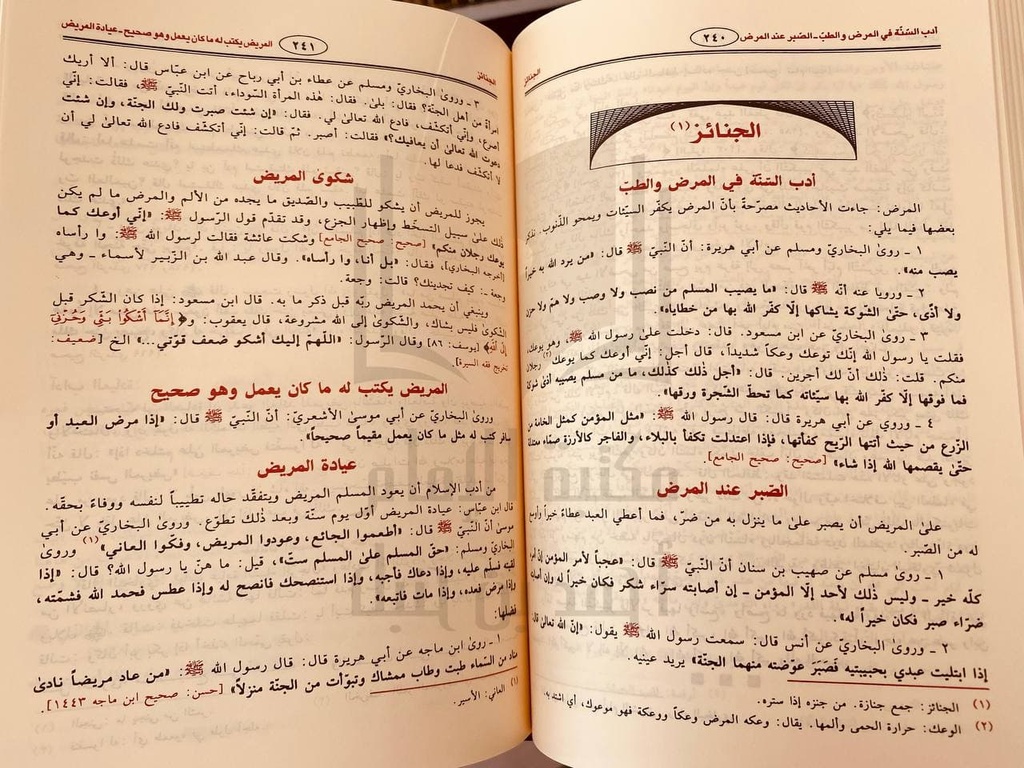 أدب السّنّة في المرض والطبّ - الصّبر عند المرض
٢٤٠
الجنائز
الجنائز (١)
أدب السّنّة في المرض والطبّ
المرض: جاءت الأحاديث مصرّحة بأنّ المرض يكفّر السيّئات ويمحو الذّنوب. نذكر
بعضها فيما يلي:
١ - روىٰ البخاريّ ومسلم عن أبي هريرة: أنّ النّبيّ ﷺ قال: «من يرد الله به خيراً
يصب منه».
٢ - ورويا عنه أنّه ﷺ قال: «ما يصيب المسلم من نصب ولا وصب ولا همّ ولا حزن
ولا أذًى، حتّىٰ الشّوكة يشاكها إلّا كفّر الله بها من خطاياه».
٣ - وروىٰ البخاريّ عن ابن مسعود. قال: دخلت علىٰ رسول الله ﷺ، وهو يوعك،
فقلت يا رسول الله إنّك توعك وعكاً شديداً، قال أجل: إنّي أوعك كما يوعك (٢) رجلان
منكم. قلت: ذٰلك أنّ لك أجرين. قال: «أجل ذٰلك كذٰلك، ما من مسلم يصيبه أذًى شوكة
فما فوقها إلّا كفّر الله بها سيّئاته كما تحطّ الشّجرة ورقها».
٤ - وروي عن أبي هريرة قال: قال رسول الله ﷺ: «مثل المؤمن كمثل الخامة من
الزّرع من حيث أتتها الرّيح كفأتها، فإذا اعتدلت تكفأ بالبلاء، والفاجر كالأرزة صمّاء معتدلة
حتّىٰ يقصمها الله إذا شاء» [صحيح: صحيح الجامع].
الصّبر عند المرض
علىٰ المريض أن يصبر علىٰ ما ينزل به من ضرّ، فما أعطي العبد عطاءً خيراً وأوسع
له من الصّبر.
١ - روىٰ مسلم عن صهيب بن سنان أنّ النّبيّ ﷺ قال: «عجباً لأمر المؤمن إنّ أمره
كلّه خير - وليس ذٰلك لأحد إلّا المؤمن - إن أصابته سرّاء شكر فكان خيراً له وإن أصابته
ضرّاء صبر فكان خيراً له».
٢ - وروىٰ البخاريّ عن أنس قال: سمعت رسول الله ﷺ يقول: «إنّ الله تعالىٰ قال
إذا ابتليت عبدي بحبيبتيه فَصَبَرَ عوّضته منهما الجنّة» يريد عينيه.
(١) الجنائز: جمع جنازة. من جنزه إذا ستره.
(٢) الوعك: حرارة الحمى وألمها. يقال: وعكه المرض وعكاً ووعكة فهو موعوك، أي اشتد به.
المريض يكتب له ما كان يعمل وهو صحيح - عيادة المريض
٢٤١
الجنائز
٣ - وروىٰ البخاريّ ومسلم عن عطاء بن أبي رباح عن ابن عبّاس قال: ألا أريك
امرأة من أهل الجنّة؟ فقال: بلىٰ. فقال: هٰذه المرأة السّوداء، أتت النّبيّ ﷺ، فقالت: إنّي
أصرع، وإنّي أتكشّف، فادع الله تعالىٰ لي. فقال: «إن شئت صبرت ولك الجنّة، وإن شئت
دعوت الله تعالىٰ أن يعافيك؟» فقالت: أصبر. ثمّ قالت: إنّي أتكشّف فادع الله تعالىٰ لي أن
لا أتكشّف فدعا لها.
شكوىٰ المريض
يجوز للمريض أن يشكو للطّبيب والصّديق ما يجده من الألم والمرض ما لم يكن
ذٰلك علىٰ سبيل التسخّط وإظهار الجزع، وقد تقدّم قول الرّسول ﷺ: «إنّي أوعك كما
يوعك رجلان منكم» [صحيح: صحيح الجامع] وشكت عائشة فقالت لرسول الله ﷺ: وا رأساه
[أخرجه البخاري]، فقال: «بل أنا، وا رأساه». وقال عبد الله بن الزّبير لأسماء - وهي
وجعة -: كيف تجدينك؟ قالت: وجعة.
وينبغي أن يحمد المريض ربّه قبل ذكر ما به. قال ابن مسعود: إذا كان الشّكر قبل
الشّكوىٰ فليس بشاك، والشّكوىٰ إلى الله مشروعة، قال يعقوب: و﴿إِنَّمَآ أَشْكُوا۟ بَثِّى وَحُزْنِىٓ
إِلَى ٱللَّهِ﴾ [يوسف: ٨٦] وقال الرّسول: «اللّهمّ إليك أشكو ضعف قوّتي...» الخ [ضعيف:
تخريج فقه السيرة].
المريض يكتب له ما كان يعمل وهو صحيح
وروىٰ البخاريّ عن أبي موسىٰ الأشعريّ: أنّ النّبيّ ﷺ قال: «إذا مرض العبد أو
سافر كتب له مثل ما كان يعمل مقيماً صحيحاً».
عيادة المريض
من أدب الإسلام أن يعود المسلم المريض ويتفقّد حاله تطييباً لنفسه ووفاءً بحقّه.
قال ابن عبّاس: عيادة المريض أوّل يوم سنّة وبعد ذٰلك تطوّع. وروىٰ البخاريّ عن أبي
موسىٰ أنّ النّبيّ ﷺ قال: «أطعموا الجائع، وعودوا المريض، وفكّوا العاني» (١) وروىٰ
البخاريّ ومسلم: «حقّ المسلم علىٰ المسلم ستّ»، قيل: ما هنّ يا رسول الله؟ قال: «إذا
لقيته فسلّم عليه، وإذا دعاك فأجبه، وإذا استنصحك فانصح له وإذا عطس فحمد الله فشمّته،
وإذا مرض فعده، وإذا مات فاتّبعه».
فضلها:
١ - روىٰ ابن ماجه عن أبي هريرة قال: قال رسول الله ﷺ: «من عاد مريضاً نادىٰ
مناد من السّماء طبت وطاب ممشاك وتبوّأت من الجنّة منزلاً» [حسن: صحيح ابن ماجه ١٤٤٣].
(١) العاني: الأسير.